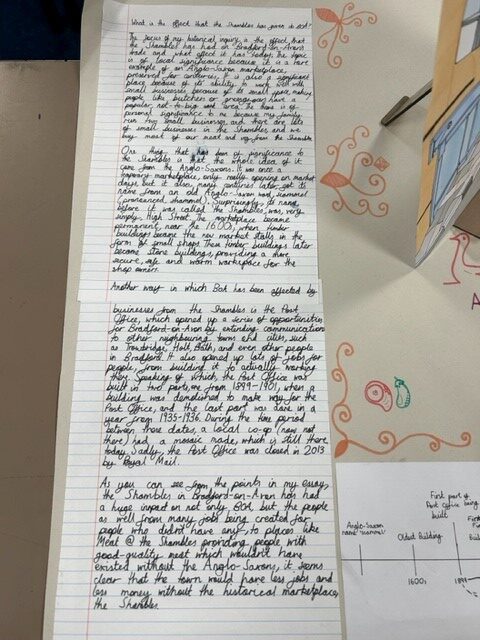 What is the effect that the Shambles has given to BOA?
The focus of my historical inquiry is the effect that
the Shambles has had on Bradford-on-Avon's
trade and what effect it has today. The topic
is of local significance because it is a rare
example of an Anglo-Saxon marketplace,
preserved for centuries. It is also a significant
place because of its ability to work well with
small businesses because of its small space, making
people like butchers or greengrocers have a
popular, not-to-big work area. The topic is of
personal significance to me because my family
run two small businesses, and there are lots
of small businesses in the Shambles and we
buy most of our meat and veg from the Shambles.
One thing that has been of significance to
the Shambles is that the whole idea of it
came from the Anglo-Saxons. It was once a
temporary marketplace, only really opening on market
days but it also, many centuries later, got its
name from an old Anglo-Saxon word, scammel
(pronounced shammel). Surprisingly, its name
before it was called the Shambles, was, very
simply, High Street. The marketplace became
permanent, near the 1600s, when timber
buildings became the new market stalls in the
form of small shops. These timber buildings later
become stone buildings, providing a more
secure, safe and warm workplace for the
shop owners.
Another way in which BOA has been affected by
businesses from the Shambles is the Post
Office, which opened up a series of opportunities
for Bradford-on-Avon by extending communications
to other neighbouring towns and cities, such
as Trowbridge, Holt, Bath, and even other people
in Bradford. It also opened up lots of jobs for
people, from building it to actually working
there. Speaking of which, the Post Office was
built in two parts, one from 1899-1901, when a
building was demolished to make way for the
Post Office, and the last part was done in a
year from 1935-1936. During the time period
between these dates, a local co-op (now not
there) had a mosaic made, which is still there
today. Sadly, the Post Office was closed in 2013
by Royal Mail.
As you can see from the points in my essay,
the Shambles in Bradford-on-Avon has had
a huge impact on not only BOA, but the people
as well. From many jobs being created for
people who didn't have any, to places like
Meat @ the Shambles providing people with
good-quality meat which wouldn't have
existed without the Anglo-Saxons, it seems
clear that the town would have less jobs and
less money without the historical marketplace,
the Shambles.
Anglo-Saxon
name 'scammel'
Oldest Building
First part of
Post Office being
built
1600s
1899